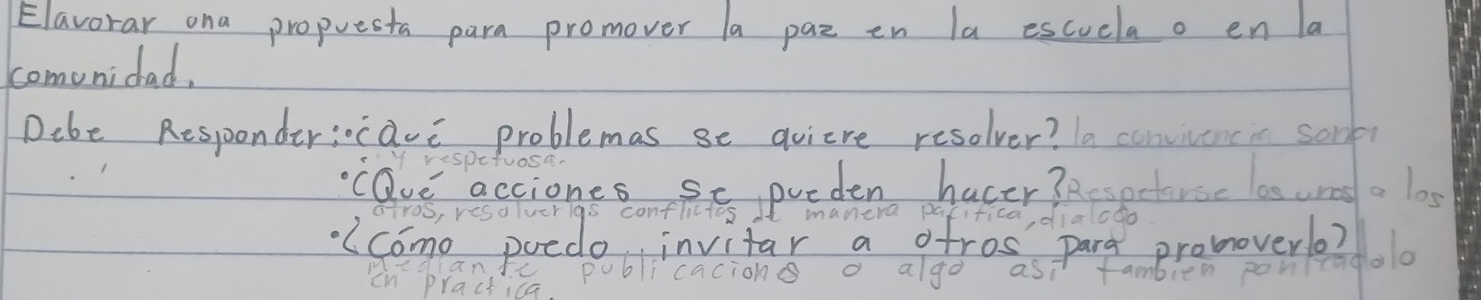 Elavorar ona propuesta para promover la paz en la escuela o en la
comunidad.
Debe Responder: •¿Qué problemas se quiere resolver? la convivencia sana
y respetuosa.
•¿Qué acciones se pueden hacer? Respetarse los unos a los
otros, resolver los conflictos de manera pacifica, dialogo.
•¿Cómo puedo invitar a otros para promoverlo?
Mediante publicaciones o algo asi tambien poniendolo
en practica.